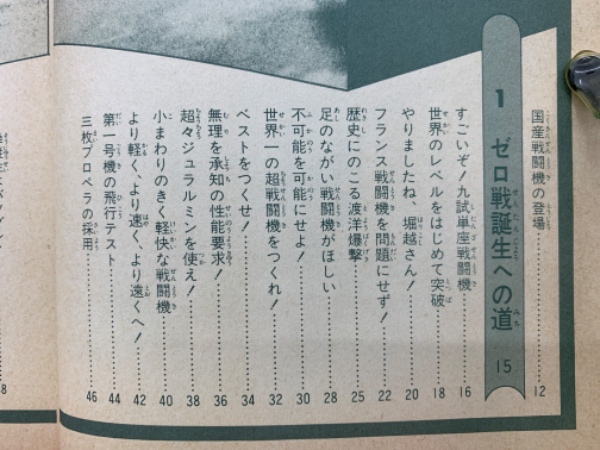 国産戦闘機の登場……12
1 ゼロ戦誕生への道 15
すごいぞ!九試単座戦闘機……16
世界のレベルをはじめて突破……18
やりましたね、堀越さん!……20
フランス戦闘機を問題にせず!……22
歴史にのこる渡洋爆撃……25
足のながい戦闘機がほしい……28
不可能を可能にせよ!……30
世界一の超戦闘機をつくれ!……32
ベストをつくせ!……34
無理を承知の性能要求!……36
超々ジュラルミンを使え!……38
小まわりのきく軽快な戦闘機……40
より軽く、より速く、より遠くへ!……42
第一号機の飛行テスト……44
三枚プロペラの採用……46